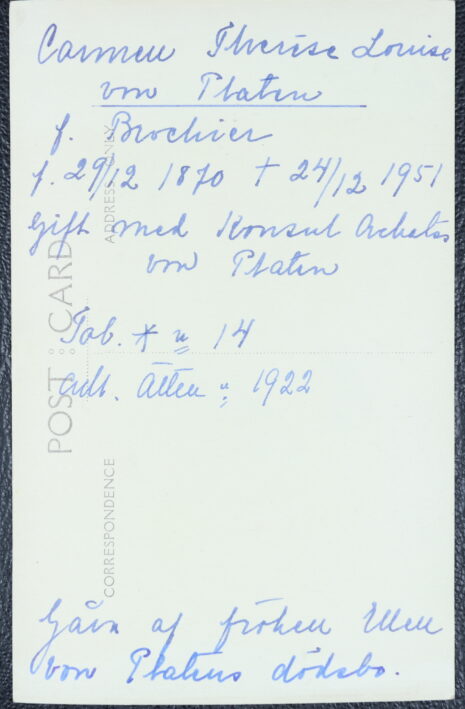 Carmen Therèse Louise
von Platen
f. Brochier
f. 29/12 1870 † 24/12 1951
Gift med Konsul Achates
von Platen
Tab. * n 14
Adl. Ätten n; 1922
Gåva af fröken Ellen
von Platens dödsbo.
POST CARD
ADDRESS ONLY
CORRESPONDENCE